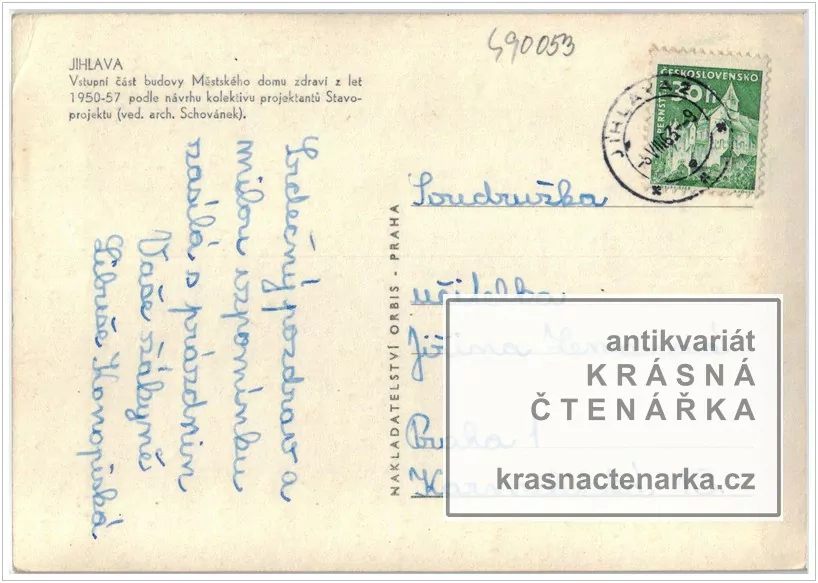 490053
JIHLAVA
Vstupní část budovy Městského domu zdraví z let
1950-57 podle návrhu kolektivu projektantů Stavo-
projektu (ved. arch. Schovánek).
ČESKOSLOVENSKO
30 h
PERNŠTEJN
JIHLAVA 2
Srdečný pozdrav a
milou vzpomínku
zasílá s prázdnin
Vaše žákyně
Libuše Konopiská
NAKLADATELSTVÍ ORBIS - PRAHA
Soudružka
učitelka
Jiřina
Praha 1
antikvariát
KRÁSNÁ
ČTENÁŘKA
krasnactenarka.cz